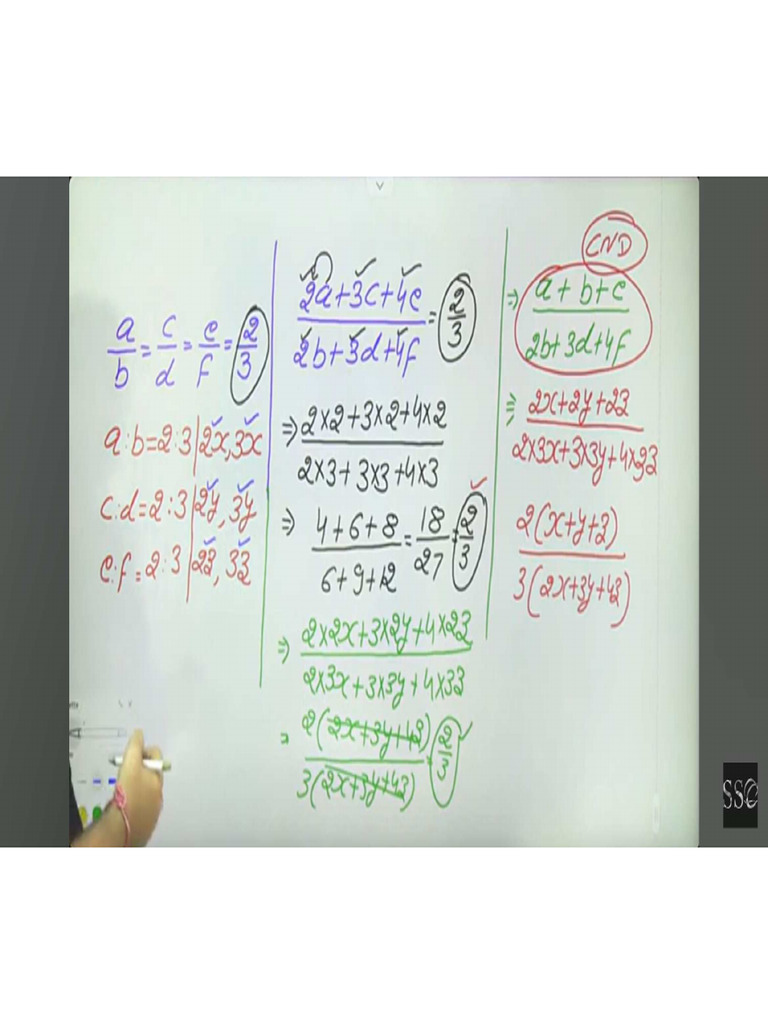 a/b = c/d = e/f = 2/3
a:b=2:3|2x,3x
c:d=2:3|2y,3y
e:f=2:3|2z,3z
(2a+3c+4e)/(2b+3d+4f) = 2/3
⇒ (2×2+3×2+4×2)/(2×3+3×3+4×3)
⇒ (4+6+8)/(6+9+12) = 18/27 = 2/3
⇒ (2×2x+3×2y+4×2z)/(2×3x+3×3y+4×3z)
= 2(2x+3y+4z)/3(2x+3y+4z) = 2/3
CND
⇒ (a+b+e)/(2b+3d+4f)
⇒ (2x+2y+2z)/(2×3x+3×3y+4×3z)
2(x+y+z)/3(2x+3y+4z)
SSC